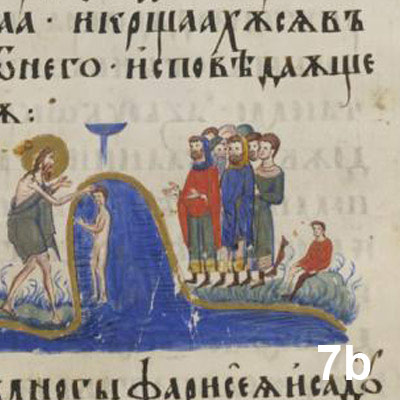 аа · и кръщаахѫсѧ въ
ѿ него · исповѣдаѫще
ѫ:
7b
многы фарисеѧ и садо